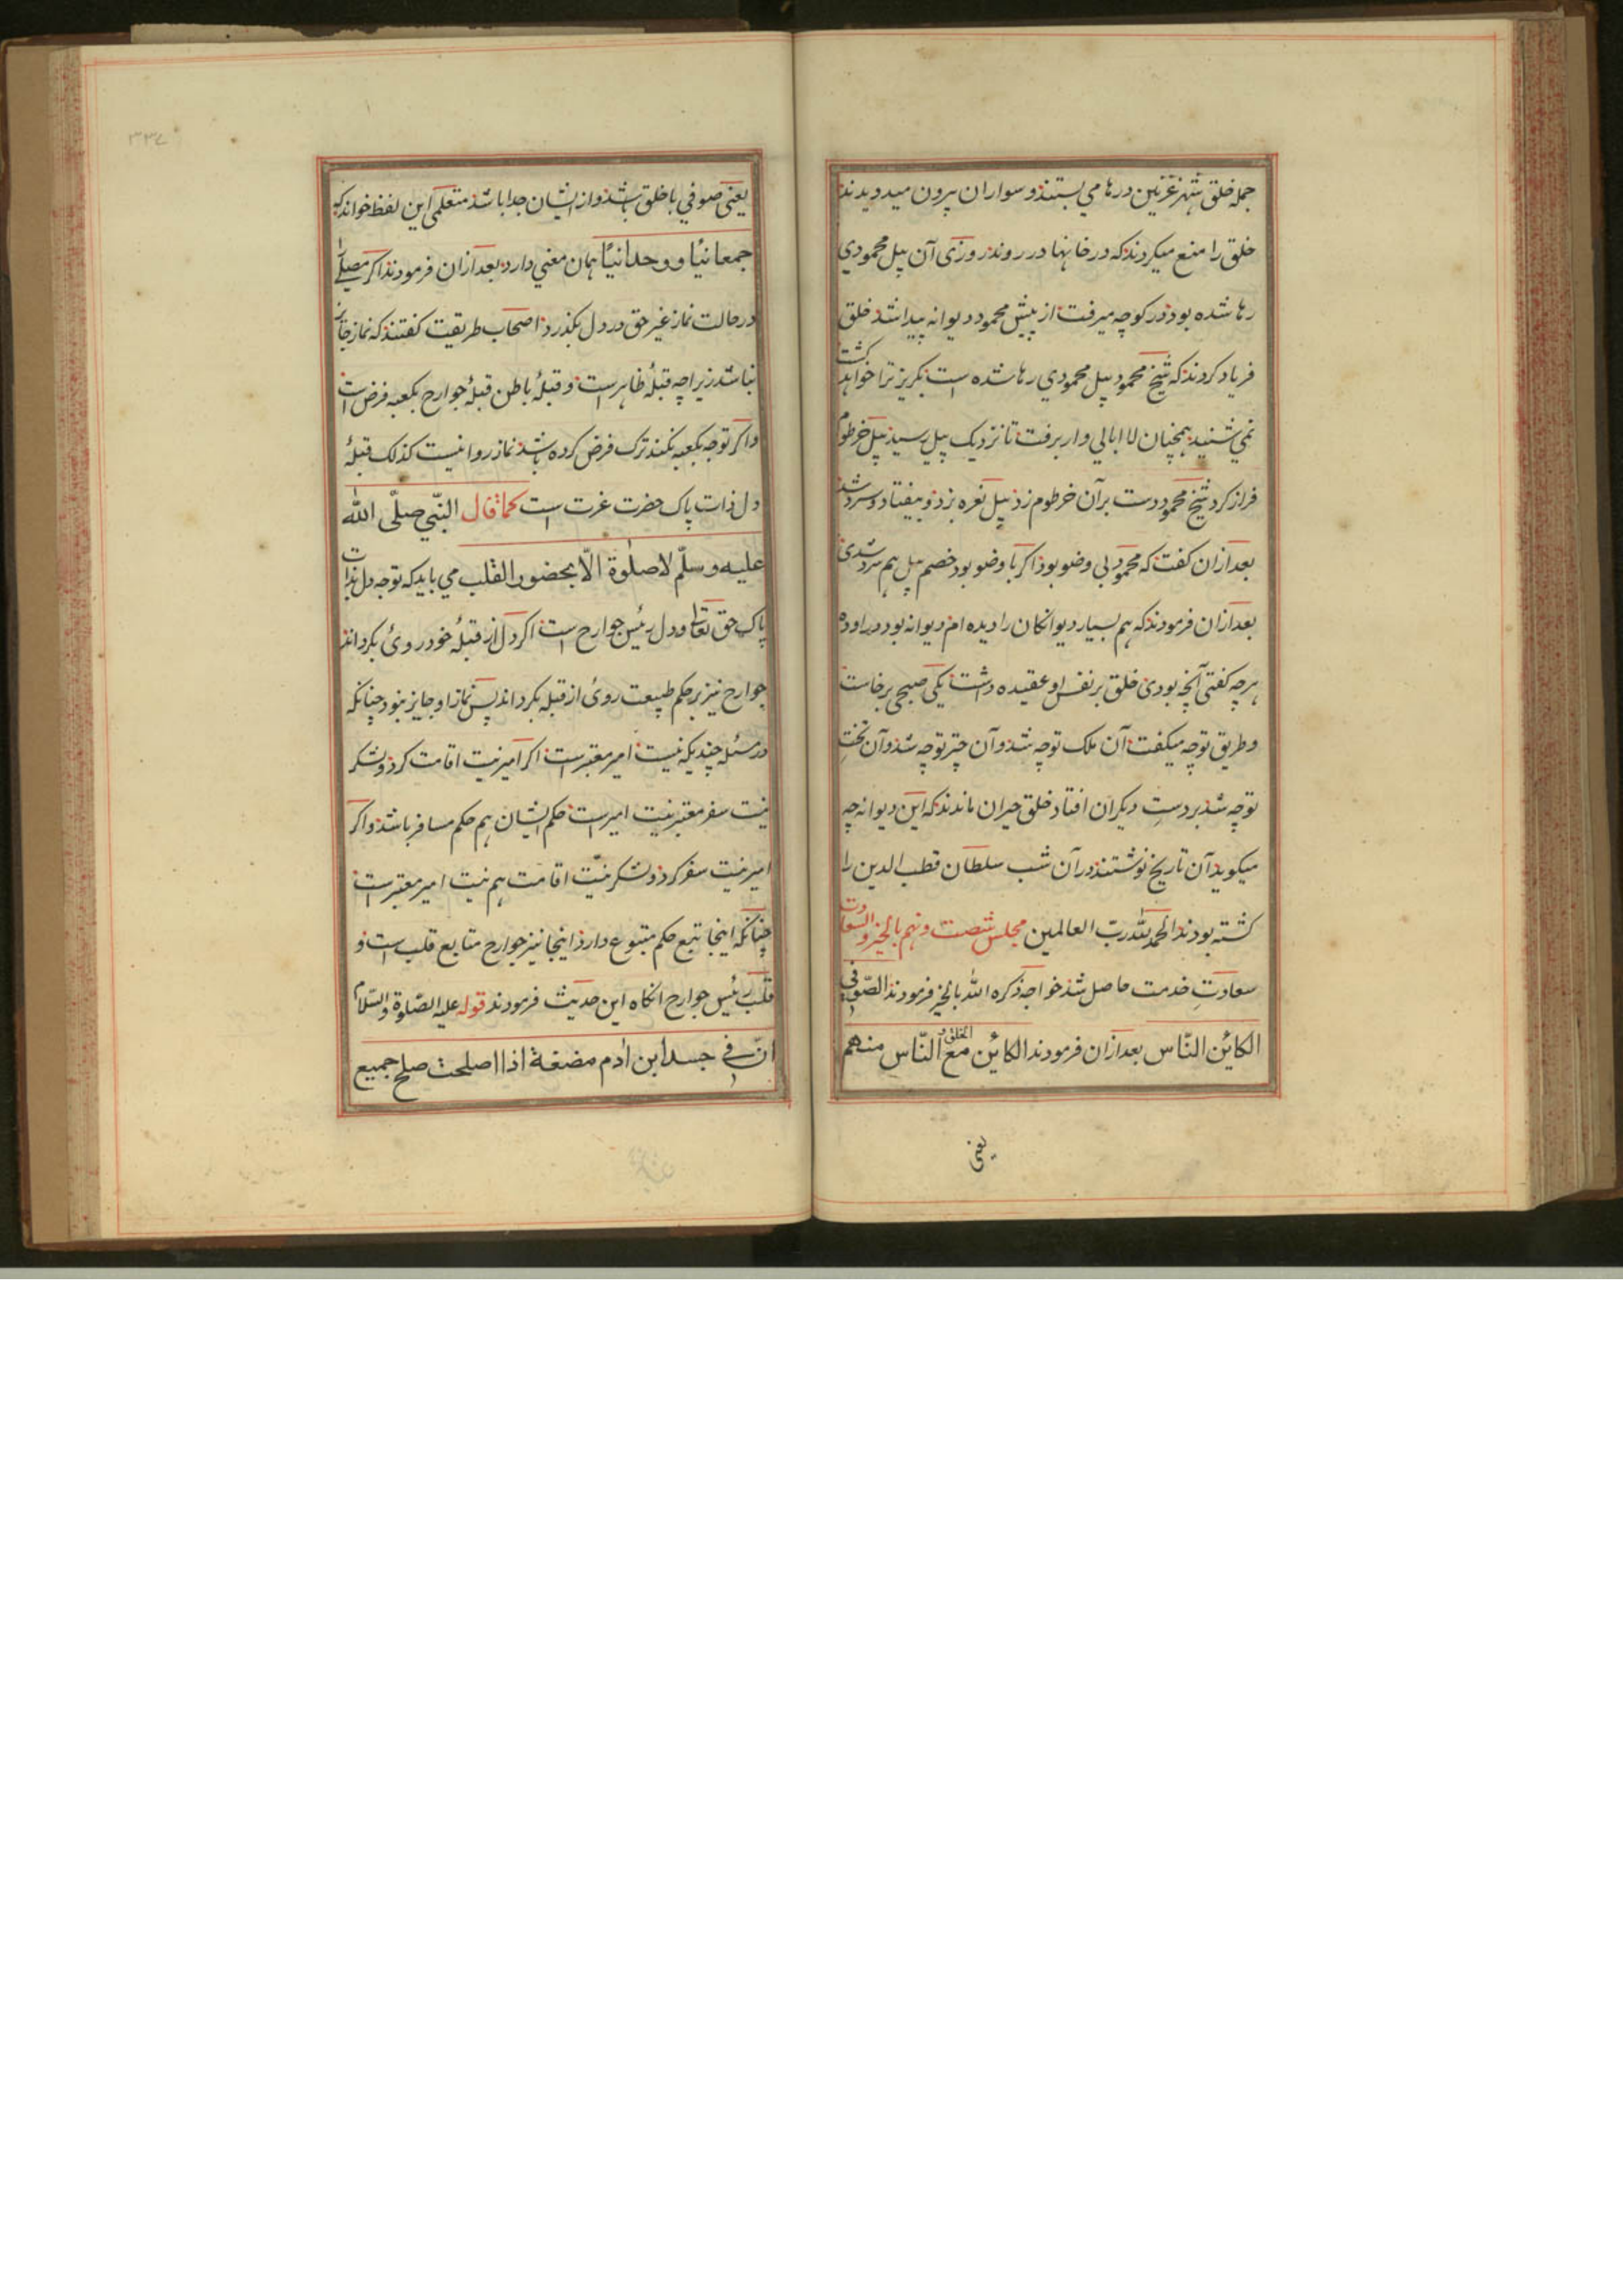 جمله خلق شهر غزنین درها می بستند و سواران بیرون میدویدند
خلق را منع میکردند که در خانها در روند روزی آن پیل محمودی
رها شده بود در کوچه میرفت از پیش محمود دیوانه پیدا شد خلق
فریاد کردند که شیخ محمود پیل محمودی رها شده است بگریز ترا خواهد کشت
نمی شنید همچنان لاابالی وار برفت تا نزدیک پیل رسید پیل خرطوم
فراز کرد شیخ محمود دست بر آن خرطوم زد پیل نعره بزد و بیفتاد و سرد شد
بعد ازان گفت که محمود بی وضو بود اگر با وضو بود خصم پیل هم سرد شدی
بعد ازان فرمودند که هم بسیار دیوانگان را دیده ام دیوانه بود در اوده
هرچه گفتی آنچه بودی خلق بر نفس او عقیده داشت یکی صبحی برخاست
و طریق توجه میگفت آن ملک توچه شد و آن چتر توچه شد و آن تخت
توچه شد بر دست دیگران افتاد خلق حیران ماندند که این دیوانه چه
میگوید آن تاریخ نوشتند در آن شب سلطان قطب الدین را
کشته بودند الحمد لله رب العالمین مجلس شصت و نهم بالخیر والسعادت
سعادت خدمت حاصل شد خواجه ذکره الله بالخیر فرمودند الصوفی
الکائن النّاس بعد ازان فرمودند الکائن مع الخلق النّاس منهم
یعنی
۳۳۷
یعنی صوفی با خلق باشد و از ایشان جدا باشد متعلمی این لفظ خواند که
جمعانیًا و وحدانیًا همان معنی دارد بعد ازان فرمودند اگر مصلی را
در حالت نماز غیر حق در دل بگذرد اصحاب طریقت گفتند که نماز جایز
نباشد زیراچه قبلهٔ ظاهر است و قبلهٔ باطن قبلهٔ جوارح بکعبه فرض است
و اگر توجه بکعبه نکند ترک فرض کرده باشد نماز روا نیست کذلک قبلهٔ
دل ذات پاک حضرت عزت است کما قال النّبی صلّی الله
علیه وسلّم لا صلوة الّا بحضور القلب می باید که توجه دل بذات
پاک حق تعالی و دل رئیس جوارح است اگر دل از قبلهٔ خود روی بگرداند
جوارح نیز بر حکم طبیعت روی از قبله بگرداند پس نماز او جایز نبود چنانکه
در مسئله چندیکه نیت امیر معتبر است اگر امیر نیت اقامت کرد و لشکر
نیت سفر معتبر نیت امیر است حکم ایشان هم حکم مسافر باشد و اگر
امیر نیت سفر کرد و لشکر نیّت اقامت هم نیت امیر معتبر است
چنانکه اینجا تبع حکم متبوع دارد اینجا نیز جوارح متابع قلب است و
قلب رئیس جوارح انگاه این حدیث فرمودند قوله علیه الصّلوة والسّلام
انّ فی جسد ابن ادم مضغة اذا اصلحت صلح جمیع